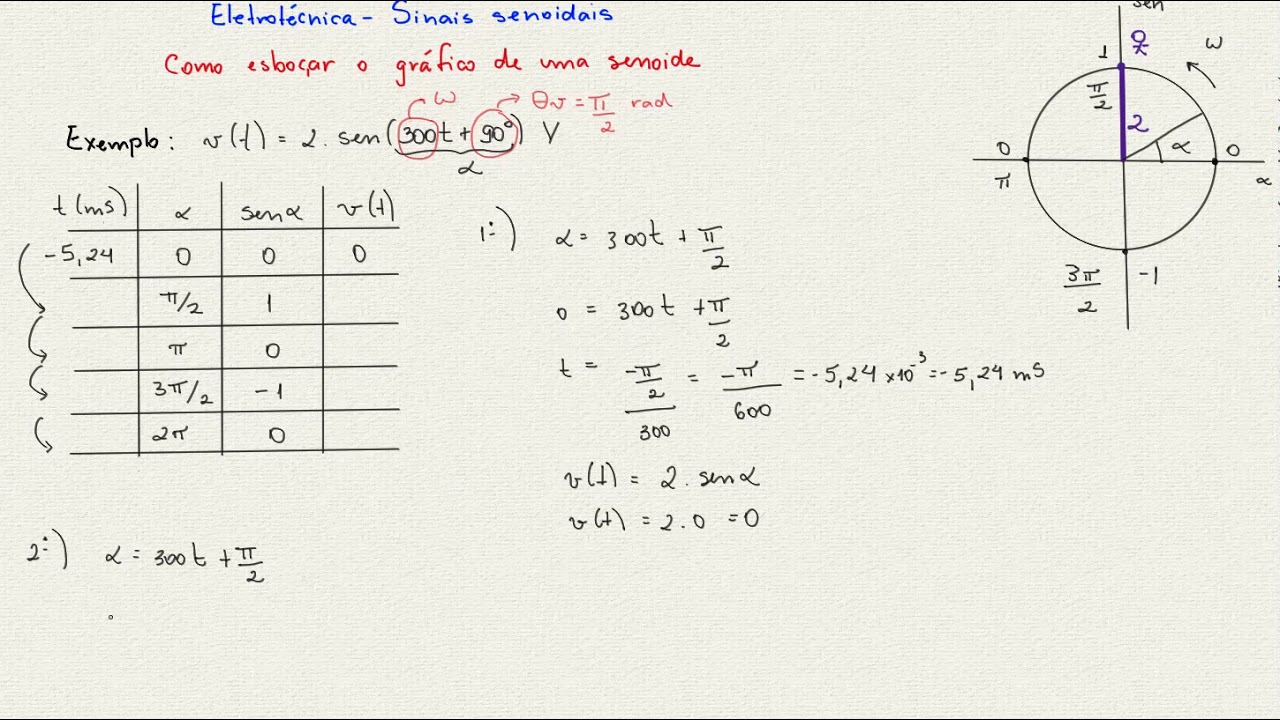 Eletrotécnica - Sinais senoidais
Como esboçar o gráfico de uma senoide
ω
θv = π/2 rad
Exemplo: v(t) = 2. sen(300t + 90°) V
α
t(ms) α senα v(t)
-5,24 0 0 0
π/2 1
π 0
3π/2 -1
2π 0
1ª) α = 300t + π/2
0 = 300t + π/2
t = (-π/2)/300 = -π/600 = -5,24 x10⁻³ = -5,24 ms
v(t) = 2. senα
v(t) = 2.0 = 0
2ª) α = 300t + π/2
sen
1
ω
π/2
2
α
0
0
π
α
3π/2
-1